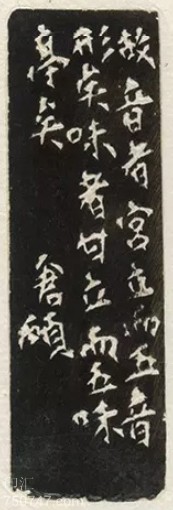 故音者宫立而五音
形矣味者甘立而五味
亭矣 倉碩
750747.com